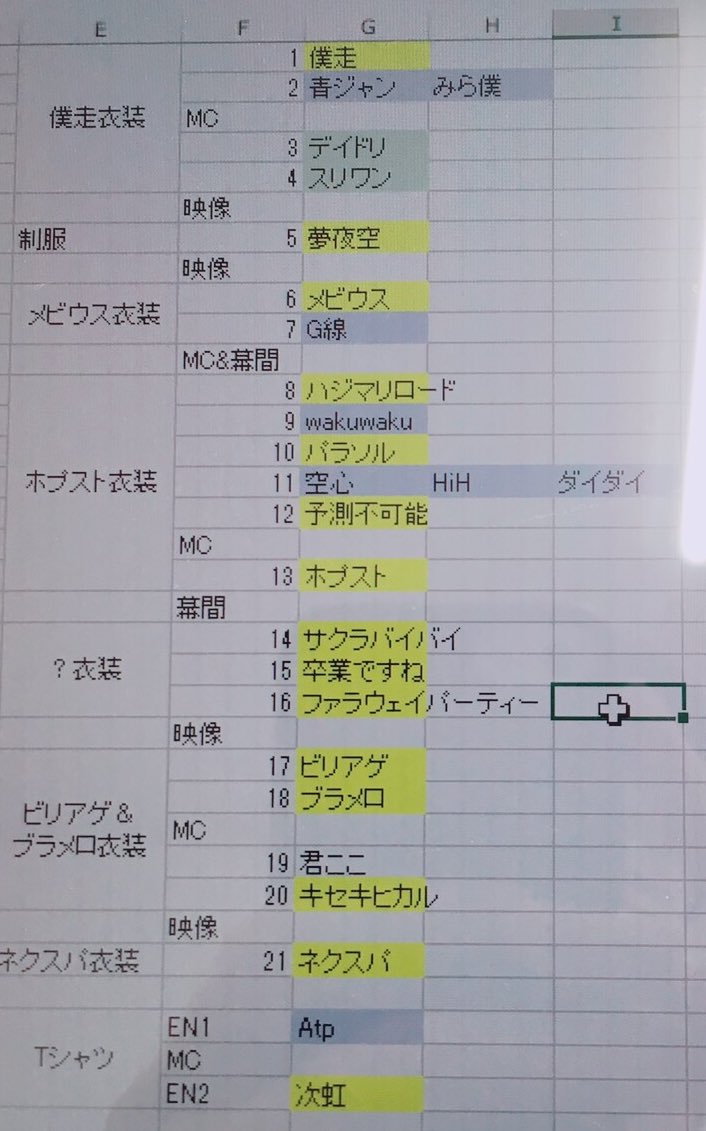 E F G H I
1 僕走
2 青ジャン みら僕
僕走衣装 MC
3 デイドリ
4 スリワン
映像
制服 5 夢夜空
映像
メビウス衣装 6 メビウス
7 G線
MC&幕間
8 ハジマリロード
9 wakuwaku
10 パラソル
ホプスト衣装 11 空心 HiH ダイダイ
12 予測不可能
MC
13 ホプスト
幕間
14 サクラバイバイ
?衣装 15 卒業ですね
16 ファラウェイパーティー
映像
17 ビリアゲ
18 ブラメロ
ビリアゲ&
ブラメロ衣装 MC
19 君ここ
20 キセキヒカル
映像
ネクスパ衣装 21 ネクスパ
EN1 Atp
Tシャツ MC
EN2 次虹